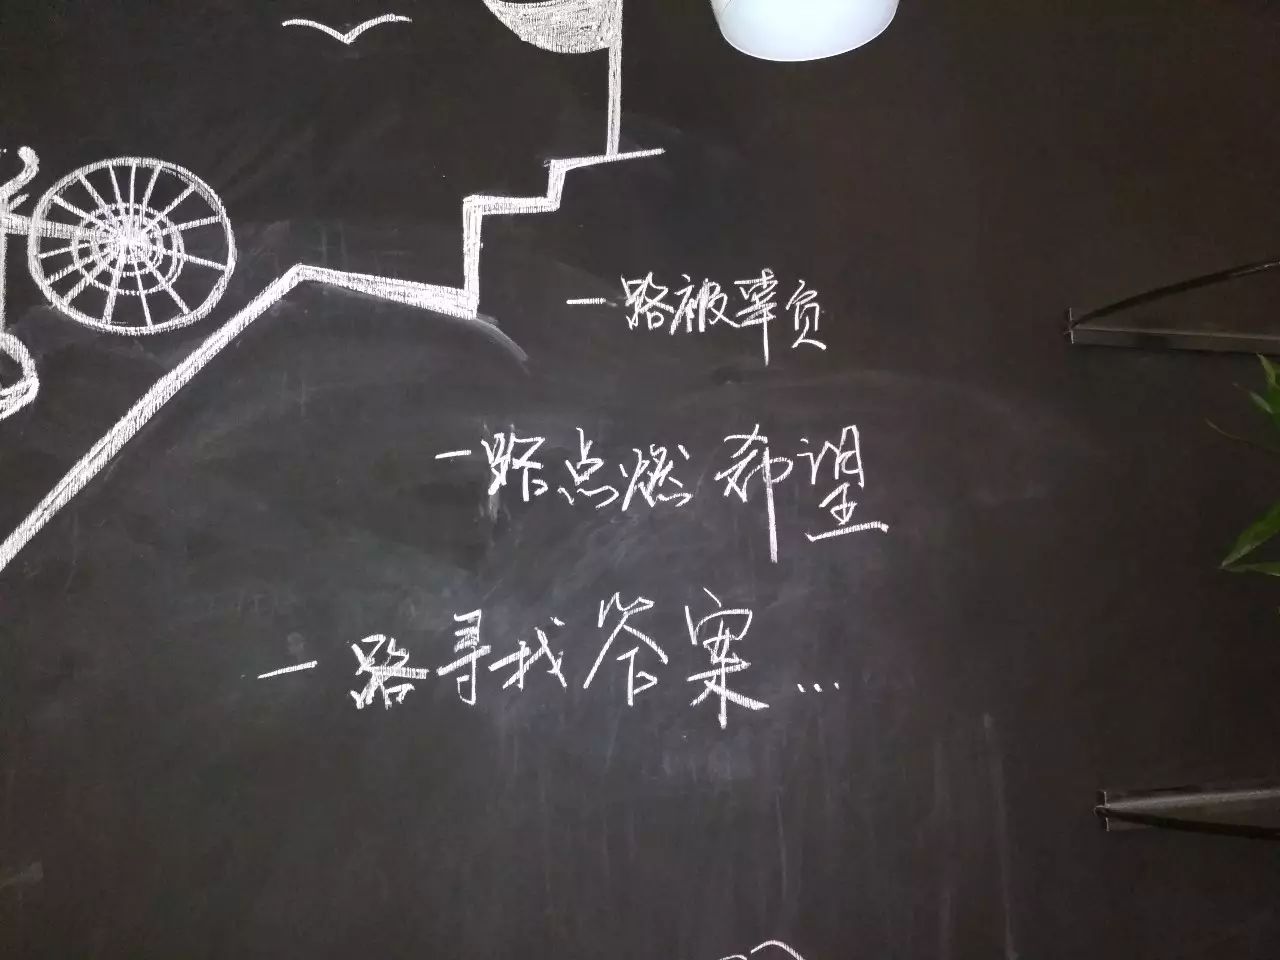 一路被辜负
一路点燃希望
一路寻找答案...